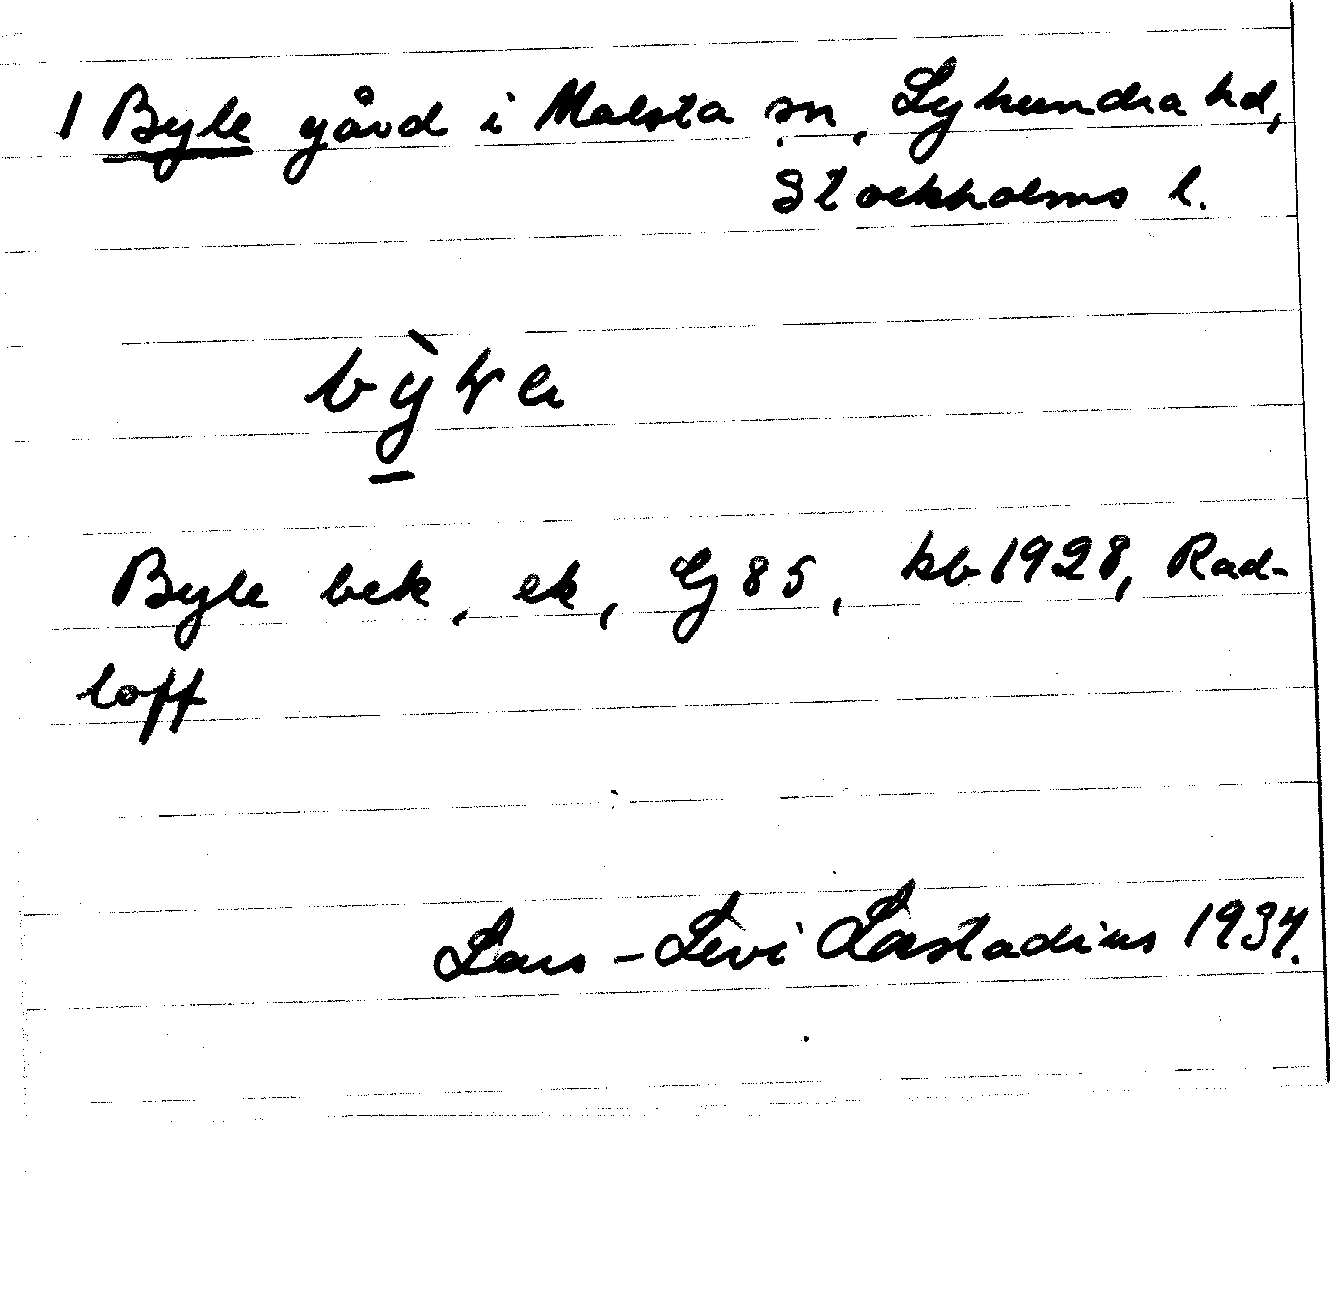 1 Byle gård i Malsta sn, Lyhundra hd,
Stockholms l.
Byle bek, ek, Gj 85, kb 1928, Rad-
loff
Lars-Levi Læstadius 1934.